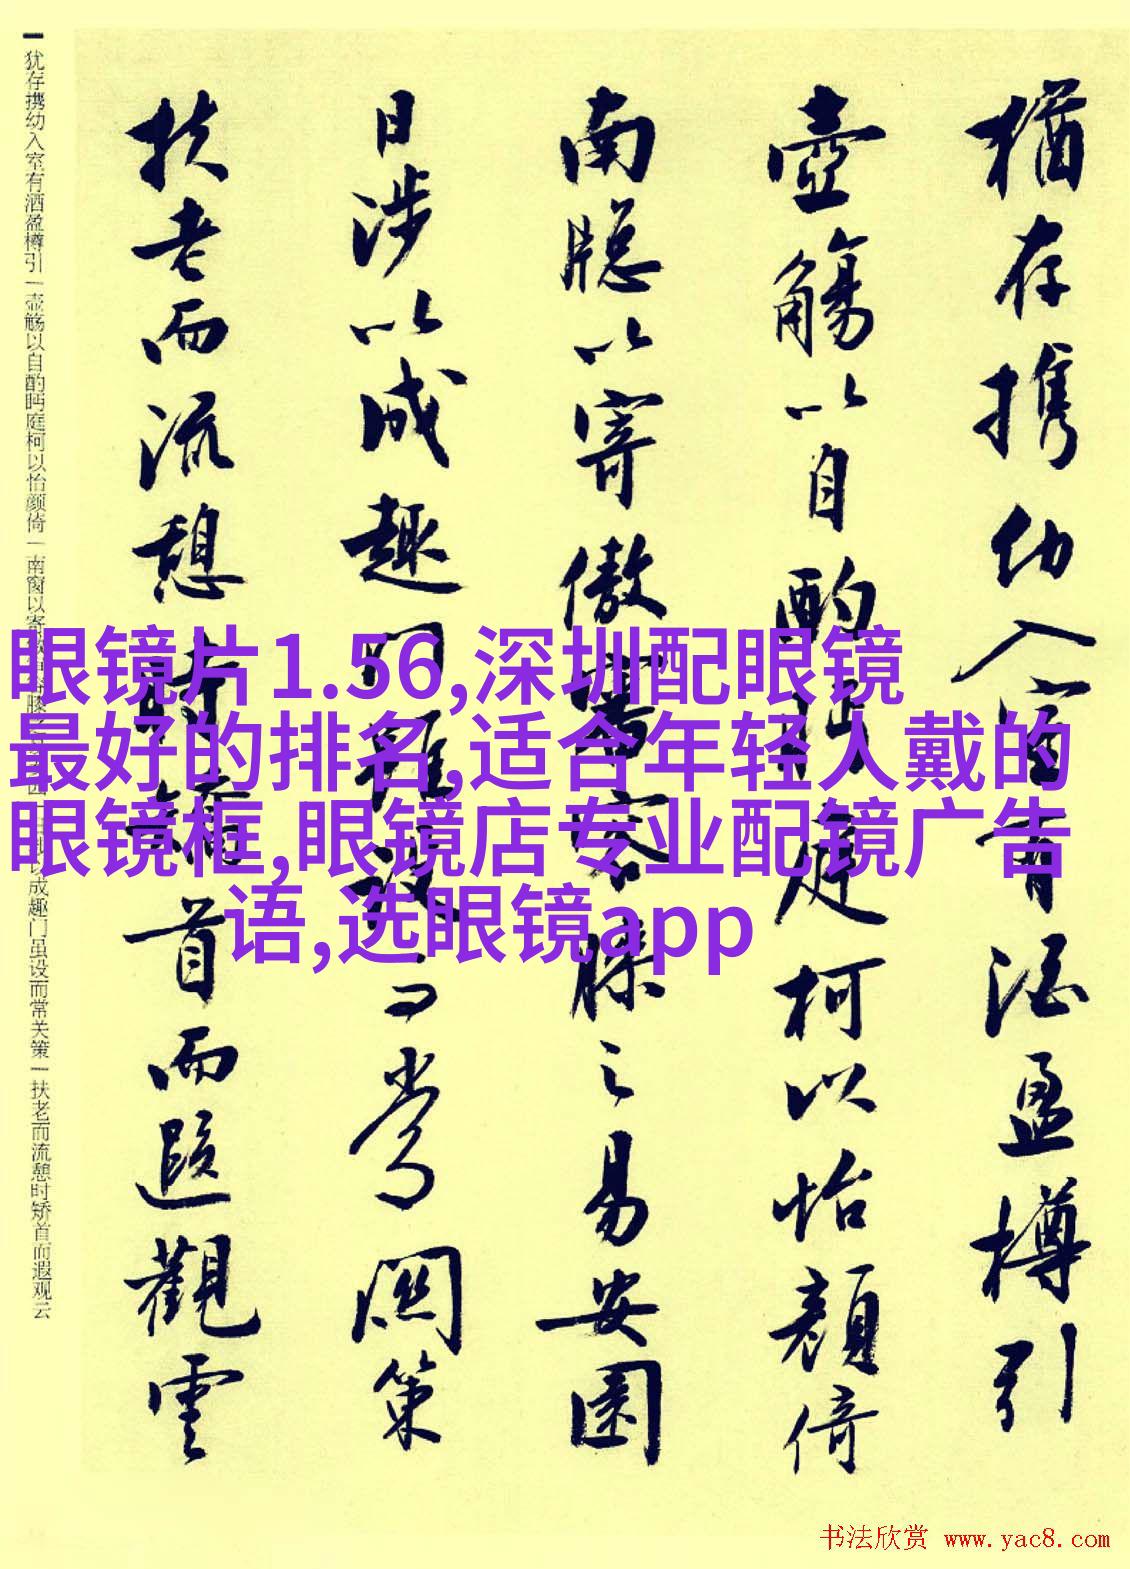 猶存携幼入室有酒盈樽引
壺觴以自酌眄庭柯以怡顔倚
南牕以寄傲審容膝之易安園
日涉以成趣門雖設而常関策
扶老而流憩時矯首而遐觀雲
犹存携幼入室有酒盈樽引一壶觞以自酌眄庭柯以怡颜倚一南窗以寄
成趣门虽设而常关策一扶老而流憩时矫首而遐观云
眼镜片1.56,深圳配眼镜
最好的排名,适合年轻人戴的
眼镜框,眼镜店专业配镜广告
语,选眼镜app
书法欣赏 www.yac8.com